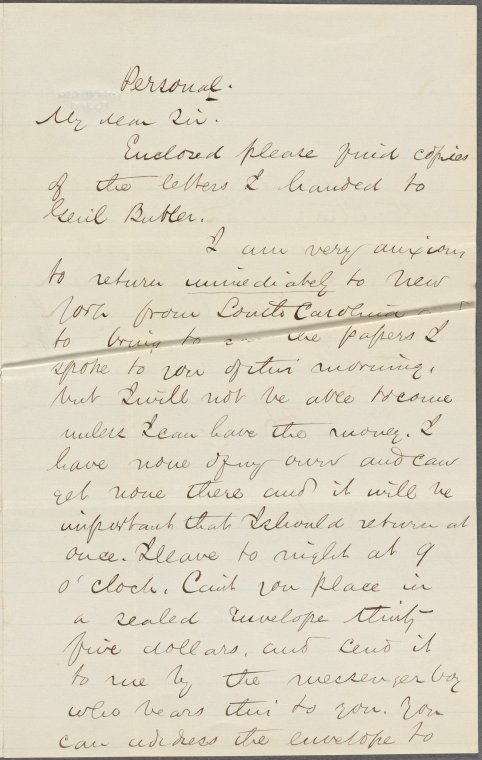 Personal.
My dear Sir.
Enclosed please find copies
of the letters I handed to
Genl Butler.
I am very anxious
to return immediately to New
York from South Carolina
to bring to the papers I
spoke to you of this morning,
but I will not be able to come
unless I can have the money. I
have none of my own and can
get none there and it will be
important that I should return at
once. I leave to night at 9
o'clock. Can't you place in
a sealed envelope thirty
five dollars, and send it
to me by the messenger boy
who bears this to you. You
can address the envelope to